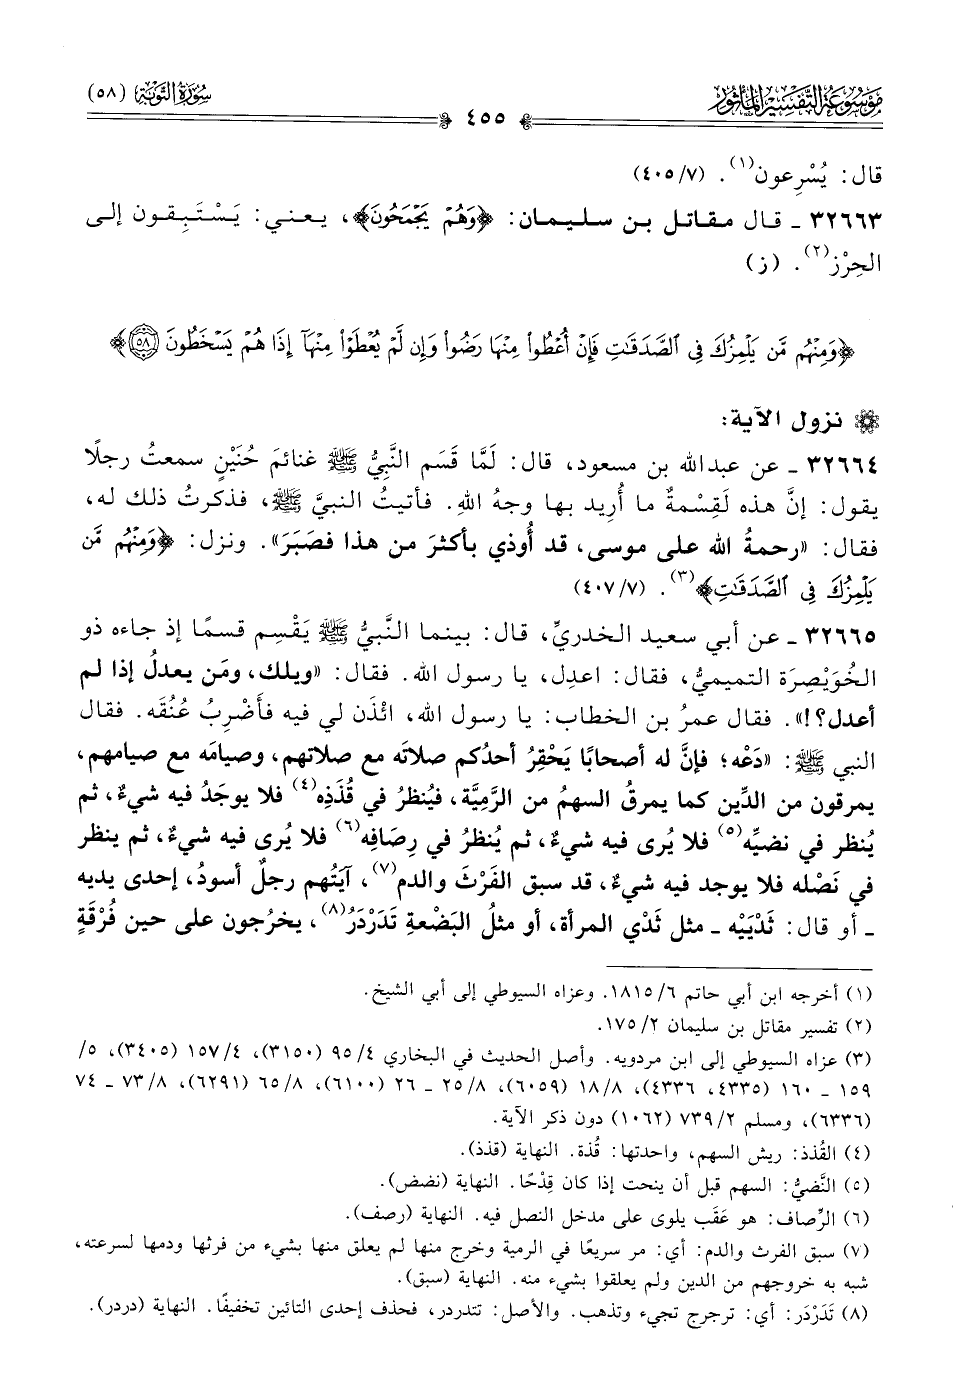 مَوْسُوعَة التَّفْسِيْر المَأْثُور
سُورَةُ التَّوْبَة (٥٨)
٤٥٥
قال: يُسْرِعون(١). (٤٠٥/٧)
٣٢٦٦٣ ـ قال مقاتل بن سليمان: ﴿وَهُمْ يَجْمَحُونَ﴾، يعني: يَسْتَبِقون إلى
الحِرْز(٢). (ز)
﴿وَمِنْهُم مَّن يَلْمِزُكَ فِي ٱلصَّدَقَٰتِ فَإِنْ أُعْطُوا۟ مِنْهَا رَضُوا۟ وَإِن لَّمْ يُعْطَوْا۟ مِنْهَآ إِذَا هُمْ يَسْخَطُونَ ٥٨﴾
نزول الآية:
٣٢٦٦٤ ـ عن عبدالله بن مسعود، قال: لَمَّا قَسَم النَّبِيُّ ﷺ غنائمَ حُنَيْنٍ سمعتُ رجلًا
يقول: إنَّ هذه لَقِسْمةٌ ما أُرِيد بها وجهُ اللهِ. فأتيتُ النبيَّ ﷺ، فذكرتُ ذلك له،
فقال: «رحمةُ الله على موسى، قد أُوذي بأكثرَ من هذا فصَبَرَ». ونزل: ﴿وَمِنْهُم مَّن
يَلْمِزُكَ فِي ٱلصَّدَقَٰتِ﴾(٣). (٤٠٧/٧)
٣٢٦٦٥ ـ عن أبي سعيد الخدريِّ، قال: بينما النَّبيُّ ﷺ يَقْسِم قسمًا إذ جاءه ذو
الخُوَيْصِرَة التميميُّ، فقال: اعدِل، يا رسول الله. فقال: «ويلك، ومَن يعدلُ إذا لم
أعدل؟!». فقال عمرُ بن الخطاب: يا رسول الله، ائْذَن لي فيه فأَضْرِبُ عُنُقَه. فقال
النبي ﷺ: «دَعْه؛ فإنَّ له أصحابًا يَحْقِرُ أحدُكم صلاتَه مع صلاتهم، وصيامَه مع صيامهم،
يمرقون من الدِّين كما يمرقُ السهمُ من الرَّمِيَّة، فيُنظرُ في قُذَذِه(٤) فلا يوجَدُ فيه شيءٌ، ثم
يُنظر في نضيِّه(٥) فلا يُرى فيه شيءٌ، ثم يُنظرُ في رِصافِه(٦) فلا يُرى فيه شيءٌ، ثم ينظر
في نَصْله فلا يوجد فيه شيءٌ، قد سبق الفَرْثَ والدم(٧)، آيَتُهم رجلٌ أسودُ، إحدى يديه
ـ أو قال: ثَدْيَيْه ـ مثل ثَدْي المرأة، أو مثلُ البَضْعةِ تَدَرْدَرُ(٨)، يخرُجون على حين فُرْقَةٍ
(١) أخرجه ابن أبي حاتم ٦/ ١٨١٥. وعزاه السيوطي إلى أبي الشيخ.
(٢) تفسير مقاتل بن سليمان ٢/ ١٧٥.
(٣) عزاه السيوطي إلى ابن مردويه. وأصل الحديث في البخاري ٤/ ٩٥ (٣١٥٠)، ٤/ ١٥٧ (٣٤٠٥)، ٥/
١٥٩ ـ ١٦٠ (٤٣٣٥، ٤٣٣٦)، ٨/ ١٨ (٦٠٥٩)، ٨/ ٢٥ ـ ٢٦ (٦١٠٠)، ٨/ ٦٥ (٦٢٩١)، ٨/ ٧٣ ـ ٧٤
(٦٣٣٦)، ومسلم ٢/ ٧٣٩ (١٠٦٢) دون ذكر الآية.
(٤) القُذذ: ريش السهم، واحدتها: قُذة. النهاية (قذذ).
(٥) النَّضيُّ: السهم قبل أن ينحت إذا كان قِدْحًا. النهاية (نضض).
(٦) الرِّصاف: هو عَقَب يلوى على مدخل النصل فيه. النهاية (رصف).
(٧) سبق الفرث والدم: أي: مر سريعًا في الرمية وخرج منها لم يعلق منها بشيء من فرثها ودمها لسرعته،
شبه به خروجهم من الدين ولم يعلقوا بشيء منه. النهاية (سبق).
(٨) تَدَرْدَر: أي: ترجرج تجيء وتذهب. والأصل: تتدردر، فحذف إحدى التائين تخفيفًا. النهاية (دردر).